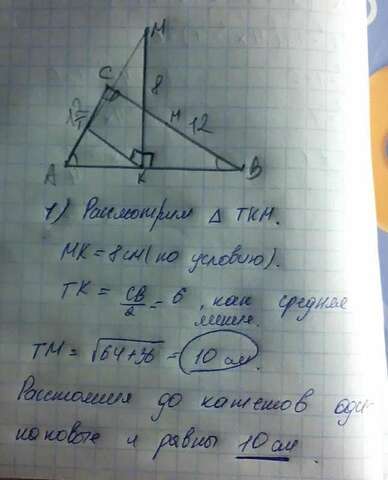 М
С
8
Н
12
Т
А
К
В
1) Рассмотрим △ ТКМ.
МК = 8 см (по условию).
ТК = СВ/2 = 6, как средняя
линия.
ТМ = √64+36 = 10 см.
Расстояния до катетов оди-
наковые и равны 10 см